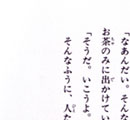 「なあんだい。そんな
お茶のみに出かけてい
「そうだ。いこうよ。
そんなふうに、人た